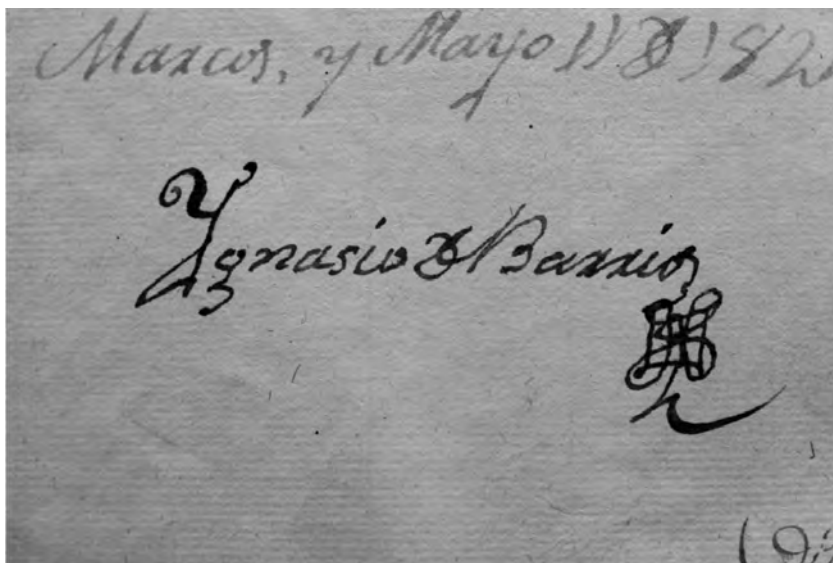 Marcos, y Mayo 11 D 182
Ygnasio D Barrios